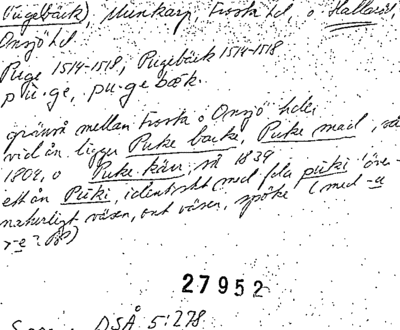 Pugebäck), Munkarp, Frosta hd, o Hallaröd,
Onsjö hd.
Puge 1514-1518, Pugebäck 1514-1518
pu·ge, pu-ge bæk.
gränså mellan Frosta o Onsjö hder
vid ån ligger Puke backe, Puke mad,
1804, o Puke kärr, så 1839
ett ån Puki, identiskt med fda puki 'över-
naturligt väsen, ont väsen, spöke (med -u
r-e?
27952
DSÅ 5:278